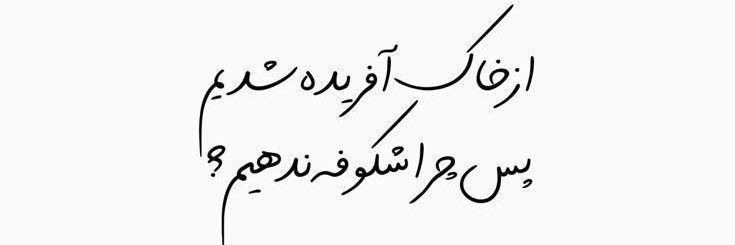 از خاک آفریده شدیم
پس چرا شکوفه ندهیم؟